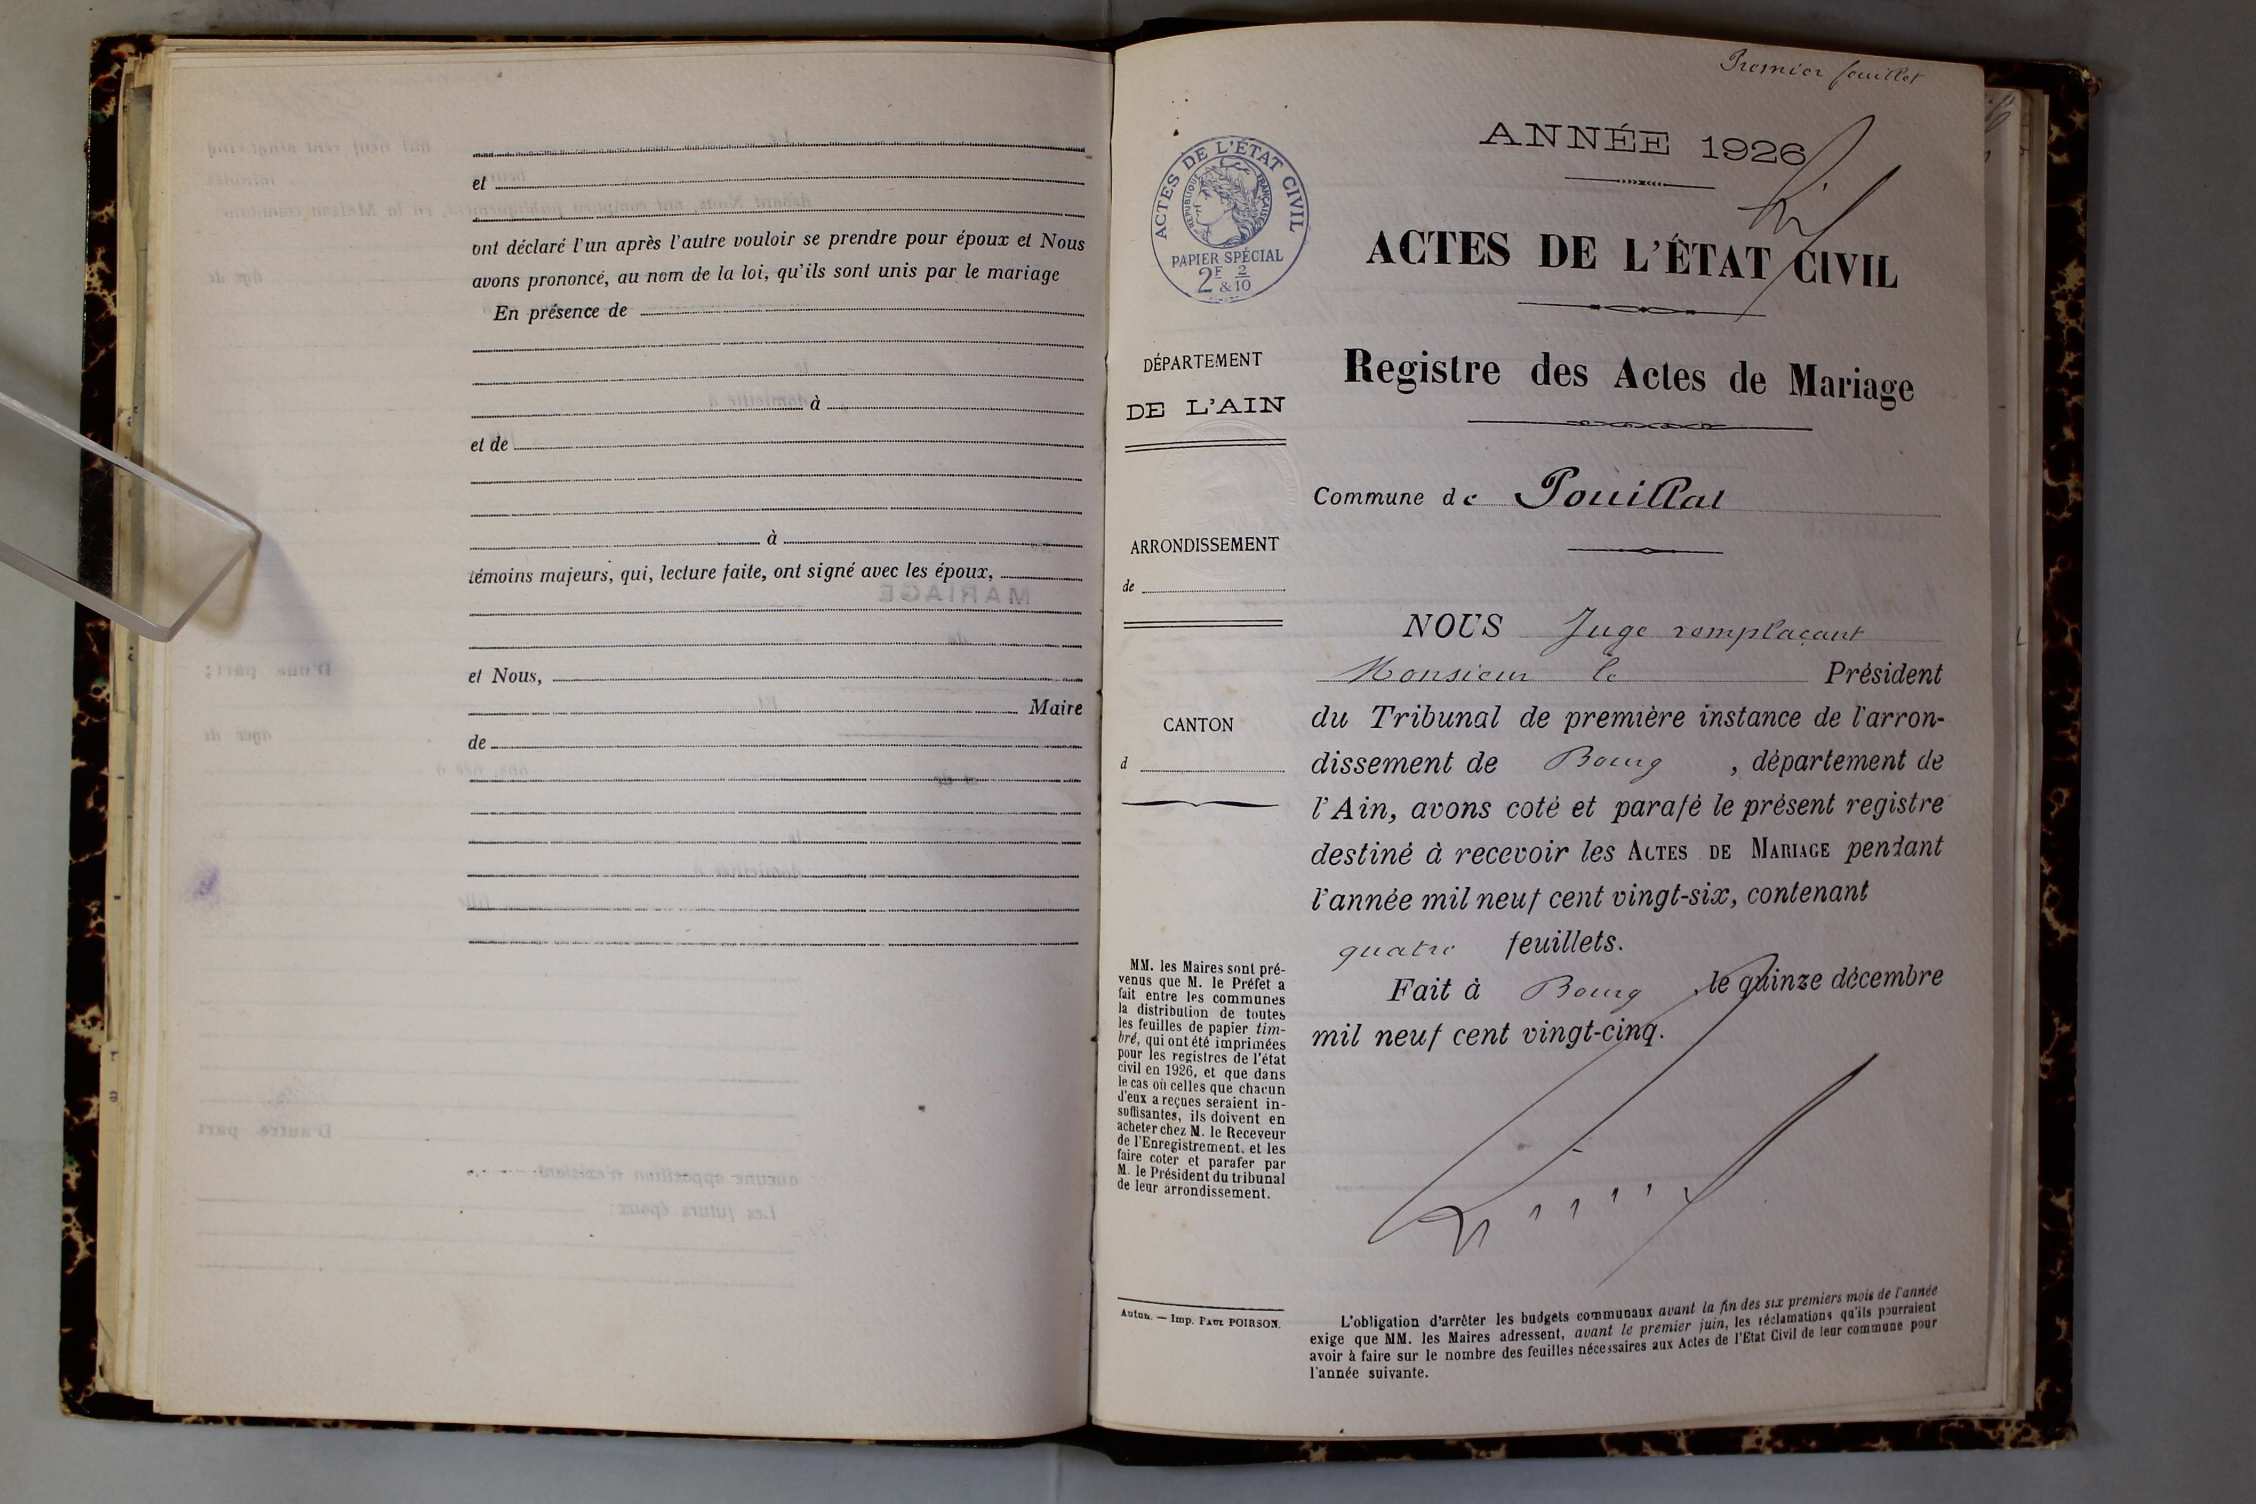 et
ont déclaré l'un après l'autre vouloir se prendre pour époux et Nous
avons prononcé, au nom de la loi, qu'ils sont unis par le mariage
En présence de
à
et de
à
témoins majeurs, qui, lecture faite, ont signé avec les époux,
et Nous,
Maire
de
Premier feuillet
ANNÉE 1926
ACTES DE L'ÉTAT CIVIL
RÉPUBLIQUE FRANÇAISE
PAPIER SPÉCIAL
2F & 2/10
ACTES DE L'ÉTAT CIVIL
Registre des Actes de Mariage
Commune de Pouillat
DÉPARTEMENT
DE L'AIN
ARRONDISSEMENT
de
CANTON
d
MM. les Maires sont pré-
venus que M. le Préfet a
fait entre les communes
la distribution de toutes
les feuilles de papier tim-
bré, qui ont été imprimées
pour les registres de l'état
civil en 1926, et que dans
le cas où celles que chacun
d'eux a reçues seraient in-
suffisantes, ils doivent en
acheter chez M. le Receveur
de l'Enregistrement, et les
faire coter et parafer par
M. le Président du tribunal
de leur arrondissement.
Autun. — Imp. PAUL POIRSON.
NOUS Juge remplaçant
Monsieur le Président
du Tribunal de première instance de l'arron-
dissement de Bourg, département de
l'Ain, avons coté et parafé le présent registre
destiné à recevoir les ACTES DE MARIAGE pendant
l'année mil neuf cent vingt-six, contenant
quatre feuillets.
Fait à Bourg, le quinze décembre
mil neuf cent vingt-cinq.
L'obligation d'arrêter les budgets communaux avant la fin des six premiers mois de l'année
exige que MM. les Maires adressent, avant le premier juin, les réclamations qu'ils pourraient
avoir à faire sur le nombre des feuilles nécessaires aux Actes de l'Etat Civil de leur commune pour
l'année suivante.